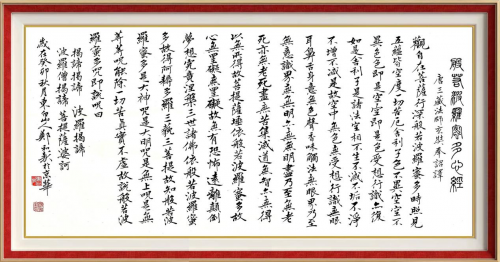 般若波羅蜜多心經
唐三藏法師玄奘奉詔譯
觀自在菩薩行深般若波羅蜜多時照見
五蘊皆空度一切苦厄舍利子色不異空空不
異色色即是空空即是色受想行識亦復
如是舍利子是諸法空相不生不滅不垢不淨
不增不減是故空中無色無受想行識無眼
耳鼻舌身意無色聲香味觸法無眼界乃至
無意識界無無明亦無無明盡乃至無老
死亦無老死盡無苦集滅道無智亦無得
以無所得故菩提薩埵依般若波羅蜜多故
心無罣礙無罣礙故無有恐怖遠離顛倒
夢想究竟涅槃三世諸佛依般若波羅蜜
多故得阿耨多羅三藐三菩提故知般若波
羅蜜多是大神咒是大明咒是無上咒是無
等等咒能除一切苦真實不虛故說般若波
羅蜜多咒即說咒曰
揭諦揭諦 波羅揭諦
波羅僧揭諦 菩提薩婆訶
歲在癸卯秋月東人鄭於京華